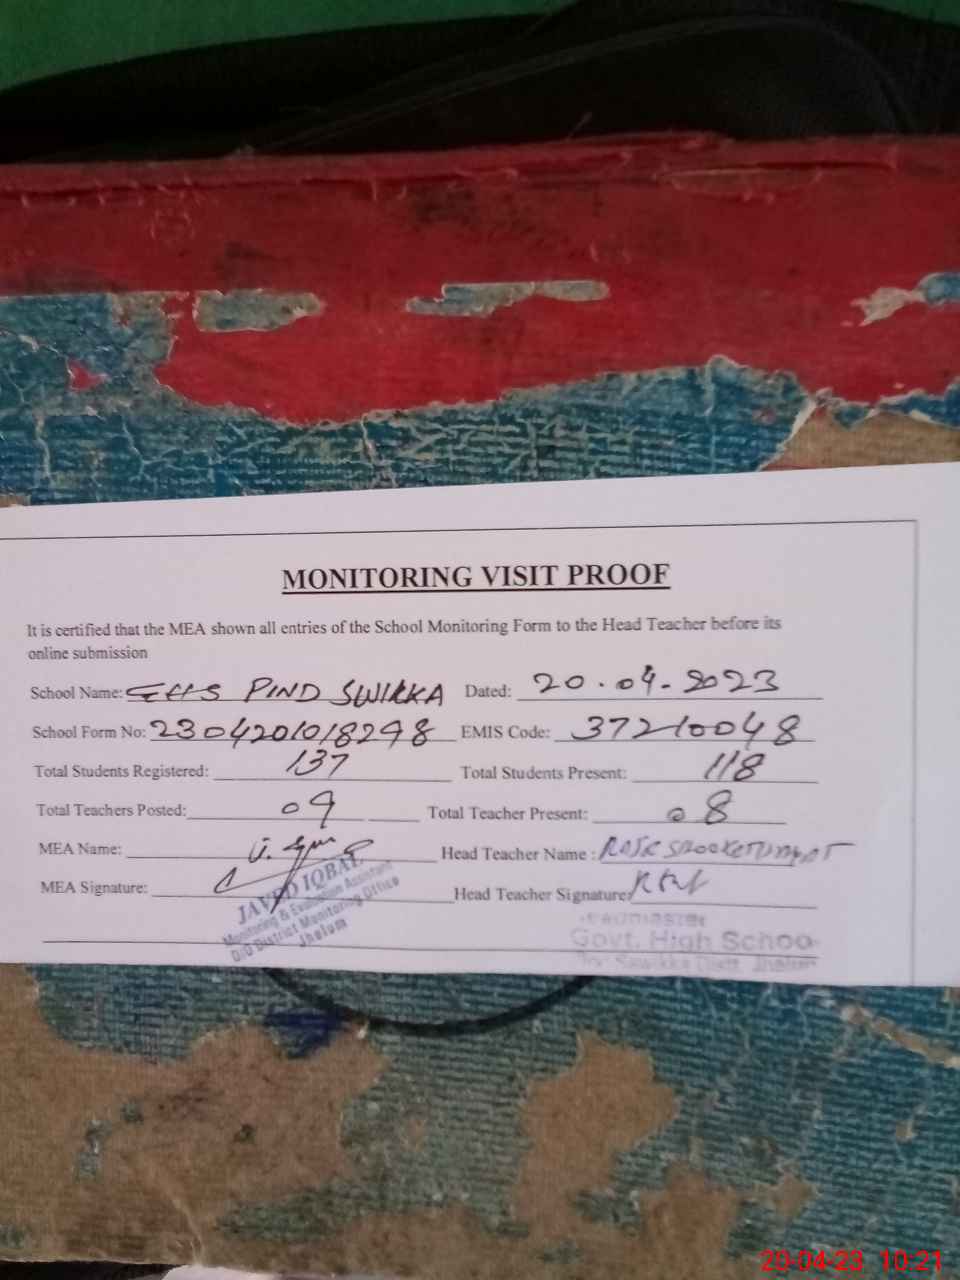 MONITORING VISIT PROOF
It is certified that the MEA shown all entries of the School Monitoring Form to the Head Teacher before its
online submission
School Name: GHS PIND SWIKKA Dated: 20.04.2023
School Form No: 2304201018298 EMIS Code: 37210048
Total Students Registered: 137 Total Students Present: 118
Total Teachers Posted: 09 Total Teacher Present: 08
MEA Name: J. Head Teacher Name :
MEA Signature: Head Teacher Signature:
JAVED IQBAL
Monitoring & Evaluation Assistant
O/O District Monitoring Office
Jhelum
HEADMASTER
Govt. High Schoo
Distt. Jhelum
20-04-23 10:21